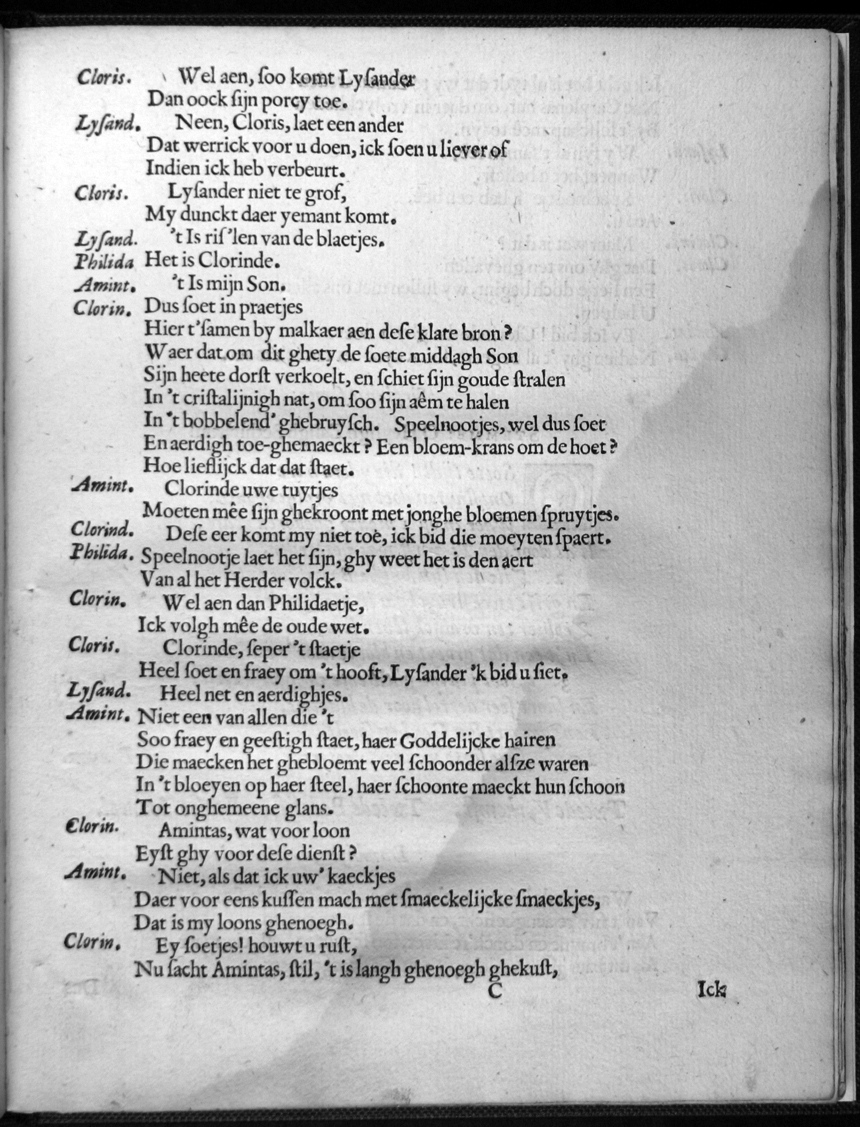 Cloris. Wel aen, ſoo komt Lyſander
Dan oock ſijn porcy toe.
Lyſand. Neen, Cloris, laet een ander
Dat werrick voor u doen, ick ſoen u liever of
Indien ick heb verbeurt.
Cloris. Lyſander niet te grof,
My dunckt daer yemant komt.
Lyſand. 't Is riſ'len van de blaetjes.
Philida Het is Clorinde.
Amint. 't Is mijn Son.
Clorin. Dus ſoet in praetjes
Hier t'ſamen by malkaer aen deſe klare bron?
Waer dat om dit ghety de ſoete middagh Son
Sijn heete dorſt verkoelt, en ſchiet ſijn goude ſtralen
In 't criſtalijnigh nat, om ſoo ſijn aêm te halen
In 't bobbelend' ghebruyſch. Speelnootjes, wel dus ſoet
En aerdigh toe-ghemaeckt? Een bloem-krans om de hoet?
Hoe lieflijck dat dat ſtaet.
Amint. Clorinde uwe tuytjes
Moeten mêe ſijn ghekroont met jonghe bloemen ſpruytjes.
Clorind. Deſe eer komt my niet toe, ick bid die moeyten ſpaert.
Philida. Speelnootje laet het ſijn, ghy weet het is den aert
Van al het Herder volck.
Clorin. Wel aen dan Philidaetje,
Ick volgh mêe de oude wet.
Cloris. Clorinde, ſeper 't ſtaetje
Heel ſoet en fraey om 't hooft, Lyſander 'k bid u ſiet.
Lyſand. Heel net en aerdighjes.
Amint. Niet een van allen die 't
Soo fraey en geeſtigh ſtaet, haer Goddelijcke hairen
Die maecken het ghebloemt veel ſchoonder alſze waren
In 't bloeyen op haer ſteel, haer ſchoonte maeckt hun ſchoon
Tot onghemeene glans.
Clorin. Amintas, wat voor loon
Eyſt ghy voor deſe dienſt?
Amint. Niet, als dat ick uw' kaeckjes
Daer voor eens kuſſen mach met ſmaeckelijcke ſmaeckjes,
Dat is my loons ghenoegh.
Clorin. Ey ſoetjes! houwt u ruſt,
Nu ſacht Amintas, ſtil, 't is langh ghenoegh ghekuſt,
C Ick